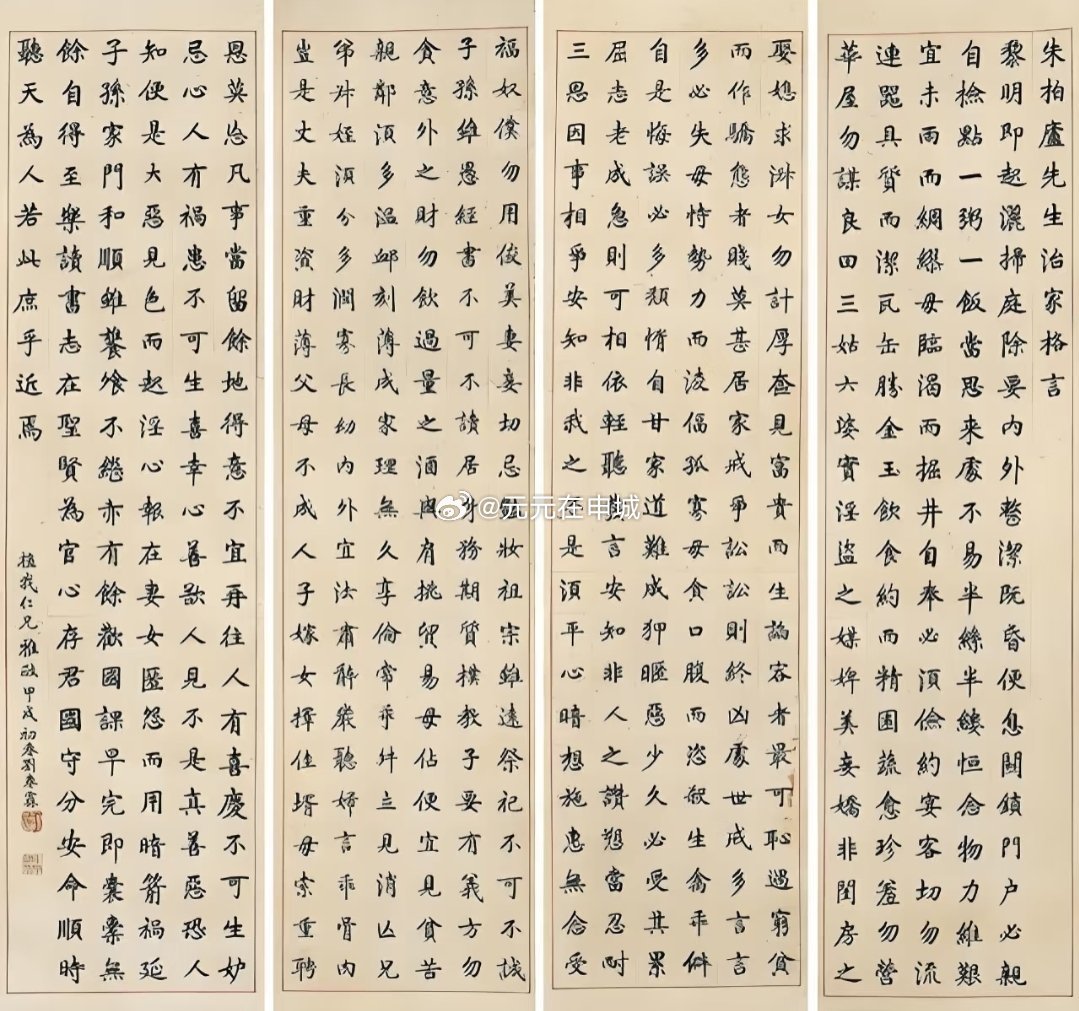 朱柏廬先生治家格言
黎明即起灑掃庭除要內外整潔既昏便息關鎖門户必親
自撿點一粥一飯當思來處不易半絲半縷恒念物力維艱
宜未雨而綢繆毋臨渴而掘井自奉必須儉約宴客切勿流
連器具質而潔瓦缶勝金玉飲食約而精園蔬愈珍羞勿營
華屋勿謀良田三姑六婆實淫盜之媒婢美妾嬌非閨房之
娶媳求淑女勿計厚奩見富貴而生諂容者最可恥遇窮貧
而作驕態者賤莫甚居家戒爭訟訟則終凶處世戒多言言
多必失毋恃勢力而淩偪孤寡毋貪口腹而恣殺生禽乖僻
自是悔誤必多頹惰自甘家道難成狎暱惡少久必受其累
屈志老成急則可相依輕聽發言安知非人之譖愬當忍耐
三思因事相爭安知非我之是須平心暗想施惠無念受
福奴僕勿用俊美妻妾切忌豔妝祖宗雖遠祭祀不可不誠
子孫雖愚經書不可不讀居身務期質樸教子要有義方勿
貪意外之財勿飲過量之酒與肩挑貿易毋佔便宜見貧苦
親鄰須多溫卹刻薄成家理無久享倫常乖舛立見消亡兄
弟叔姪須分多潤寡長幼內外宜法肅辭嚴聽婦言乖骨肉
豈是丈夫重資財薄父母不成人子嫁女擇佳壻毋索重聘
恩莫忘凡事當留餘地得意不宜再往人有喜慶不可生妒
忌心人有禍患不可生喜幸心善欲人見不是真善惡恐人
知便是大惡見色而起淫心報在妻女匿怨而用暗箭禍延
子孫家門和順雖饔飧不繼亦有餘歡國課早完即囊橐無
餘自得至樂讀書志在聖賢為官心存君國守分安命順時
聽天為人若此庶乎近焉
植我仁兄雅政甲戌初春劉春霖
@元元在申城